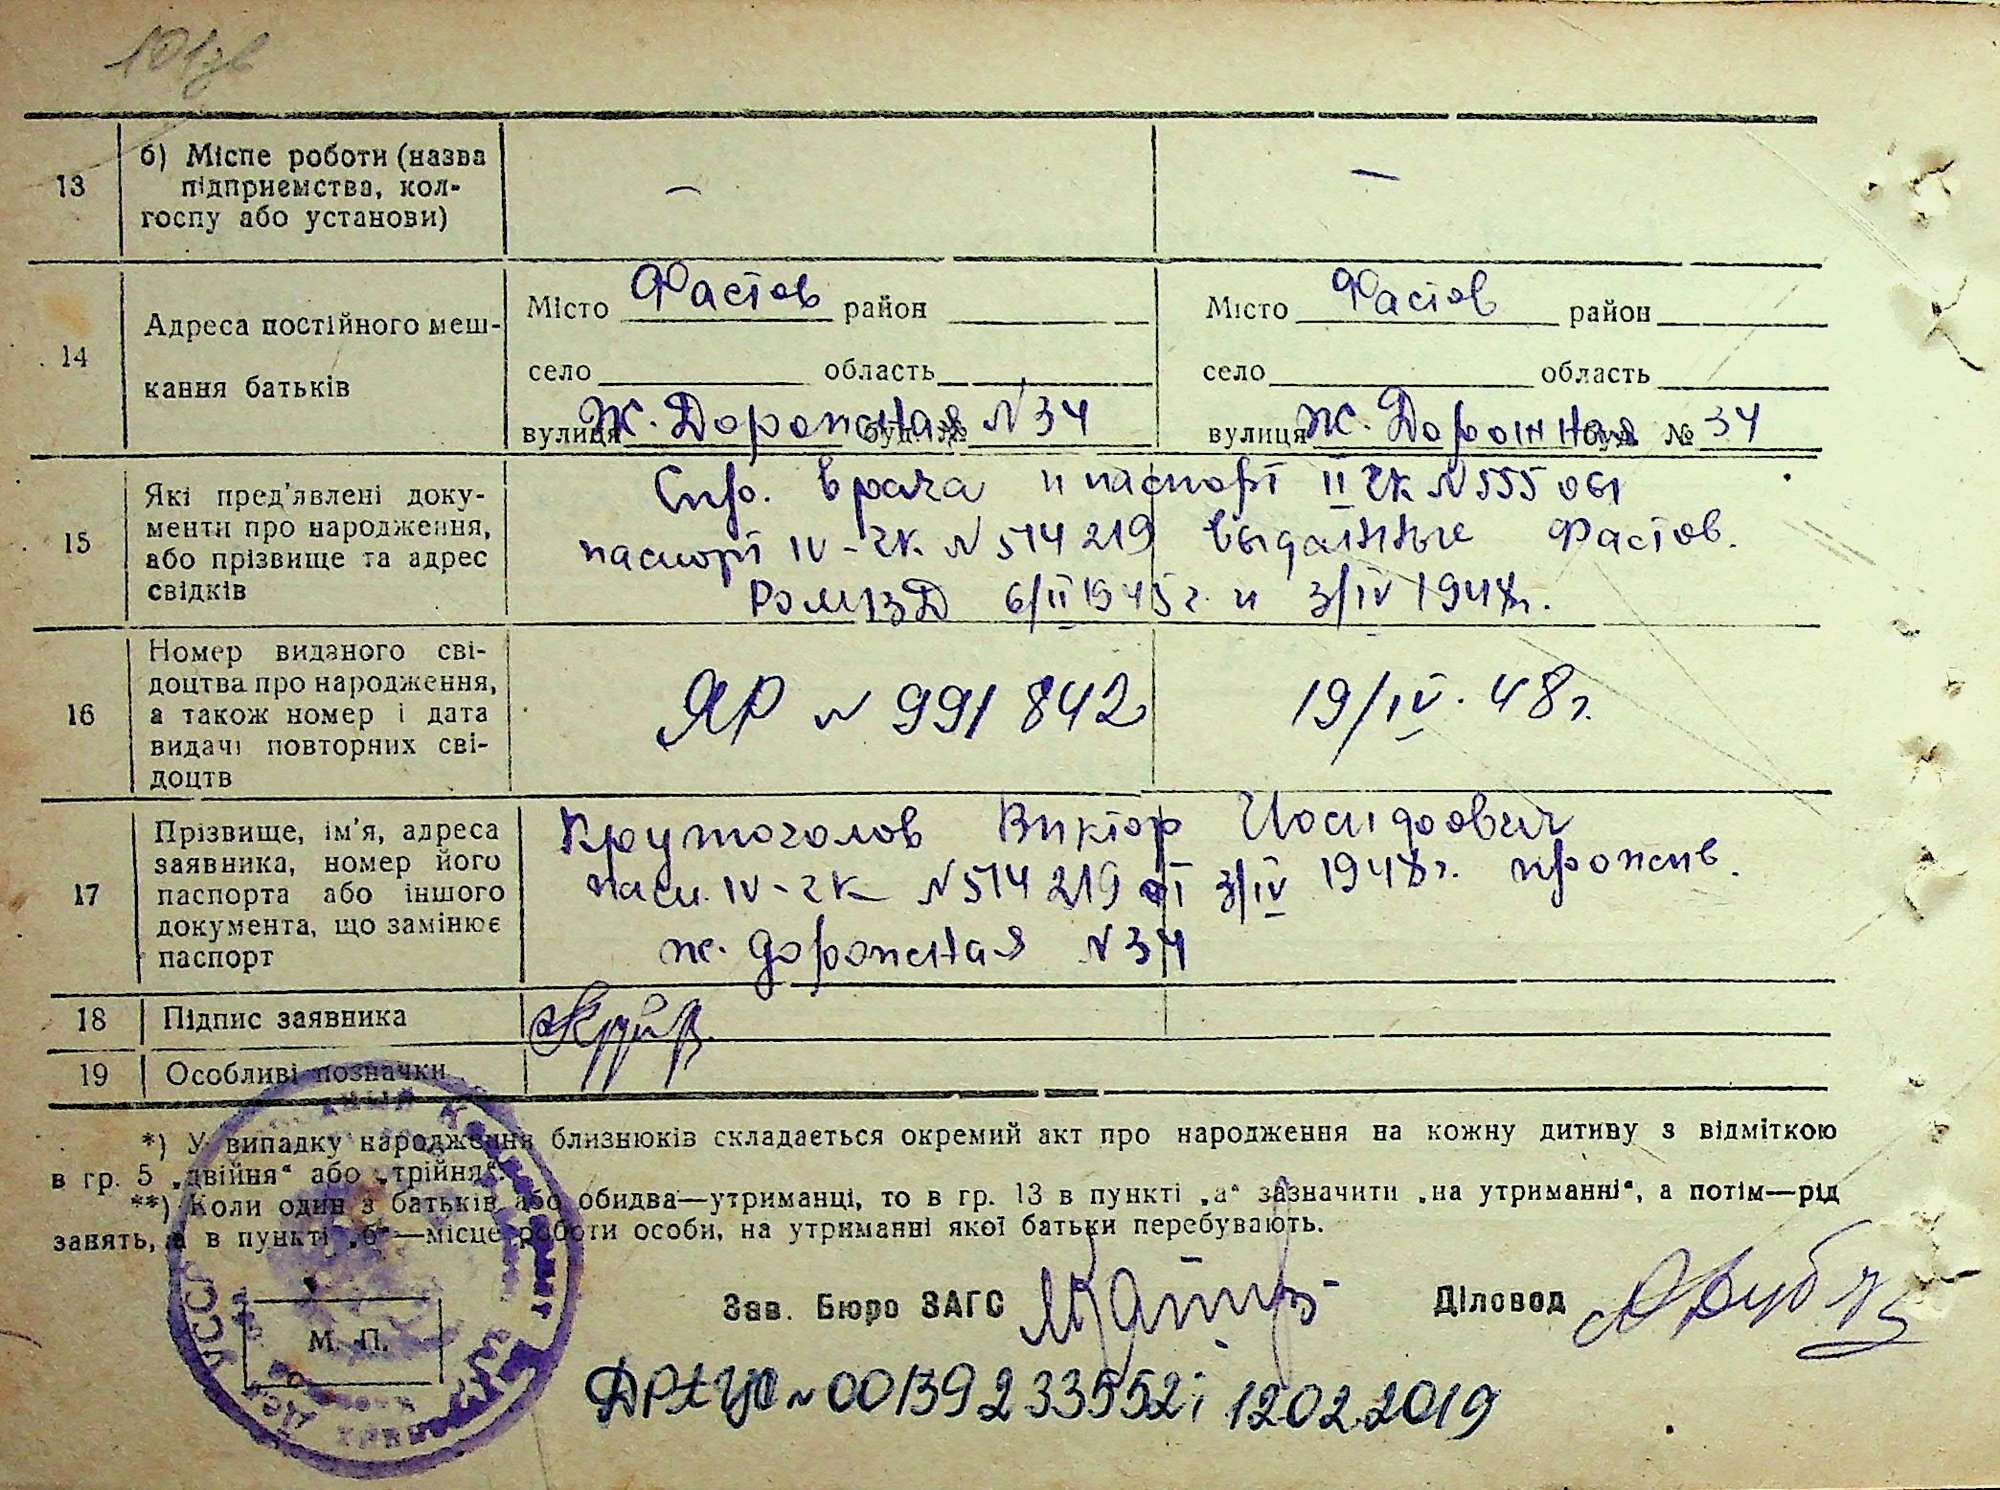 101зв
13
б) Місце роботи (назва
підприємства, кол-
госпу або установи)
—
—
14
Адреса постійного меш-
кання батьків
Місто Фастов район
село область
вулиця Ж. Дорожная буд. № N 34
Місто Фастов район
село область
вулиця Ж. Дорожная буд. № 34
15
Які пред'явлені доку-
менти про народження,
або прізвище та адрес
свідків
Спр. врача и паспорт II ЧК N 555061
паспорт IV-ЧК N 514219 выданные Фастов.
РОМВД 6/II 1945 г. и 3/IV 1948г.
16
Номер виданого сві-
доцтва про народження,
а також номер і дата
видачі повторних сві-
доцтв
ЯР N 991842
19/IV. 48 г.
17
Прізвище, ім'я, адреса
заявника, номер його
паспорта або іншого
документа, що замінює
паспорт
Крутоголов Виктор Иосифович
пасп. IV-ЧК N 514219 от 3/IV 1948г. прожив.
ж. дорожная N 34
18
Підпис заявника
19
Особливі позначки
*) У випадку народження близнюків складається окремий акт про народження на кожну дитину з відміткою
в гр. 5 „двійня“ або „трійня“.
**) Коли один з батьків або обидва—утриманці, то в гр. 13 в пункті „а“ зазначити „на утриманні“, а потім—рід
занять, а в пункті „б“—місце роботи особи, на утриманні якої батьки перебувають.
М. П.
УССР
Зав. Бюро ЗАГС
Діловод
N 00139233552; 12.02.2019